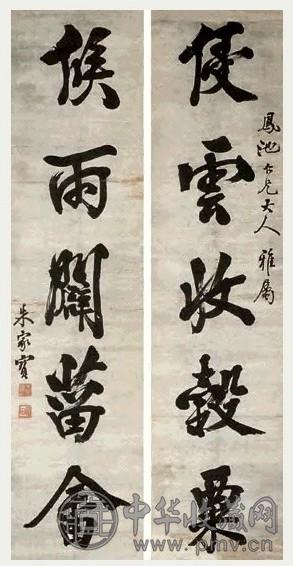 鳳池仁兄大人雅屬
侵雲收穀粟
候雨闢菑畬
朱家寶
中华收藏网
www.pmv.cn